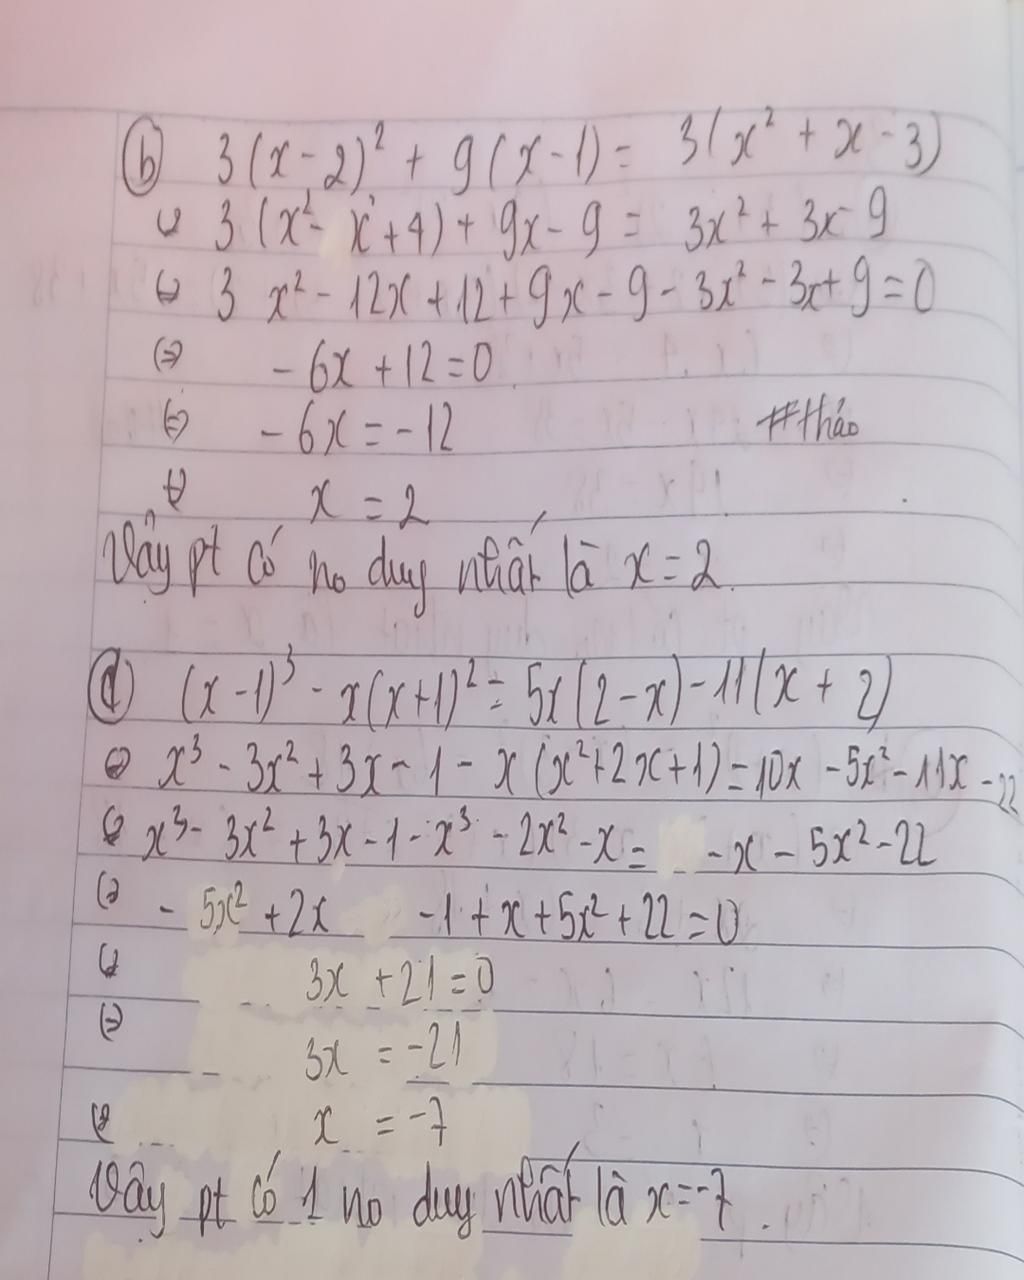 b) 3(x-2)² + 9(x-1) = 3(x² + x - 3)
⇔ 3(x² - x + 4) + 9x - 9 = 3x² + 3x - 9
⇔ 3 x² - 12x + 12 + 9x - 9 - 3x² - 3x + 9 = 0
⇔ - 6x + 12 = 0
⇔ - 6x = -12 #thảo
⇔ x = 2
Vậy pt có no duy nhất là x = 2.
d) (x-1)³ - x(x+1)² = 5x(2-x) - 11(x + 2)
⇔ x³ - 3x² + 3x - 1 - x(x²+2x+1) = 10x - 5x² - 11x - 22
⇔ x³ - 3x² + 3x - 1 - x³ - 2x² - x = - x - 5x² - 22
⇔ - 5x² + 2x - 1 + x + 5x² + 22 = 0
⇔ 3x + 21 = 0
⇔ 3x = -21
⇔ x = -7
Vậy pt có 1 no duy nhất là x = -7.